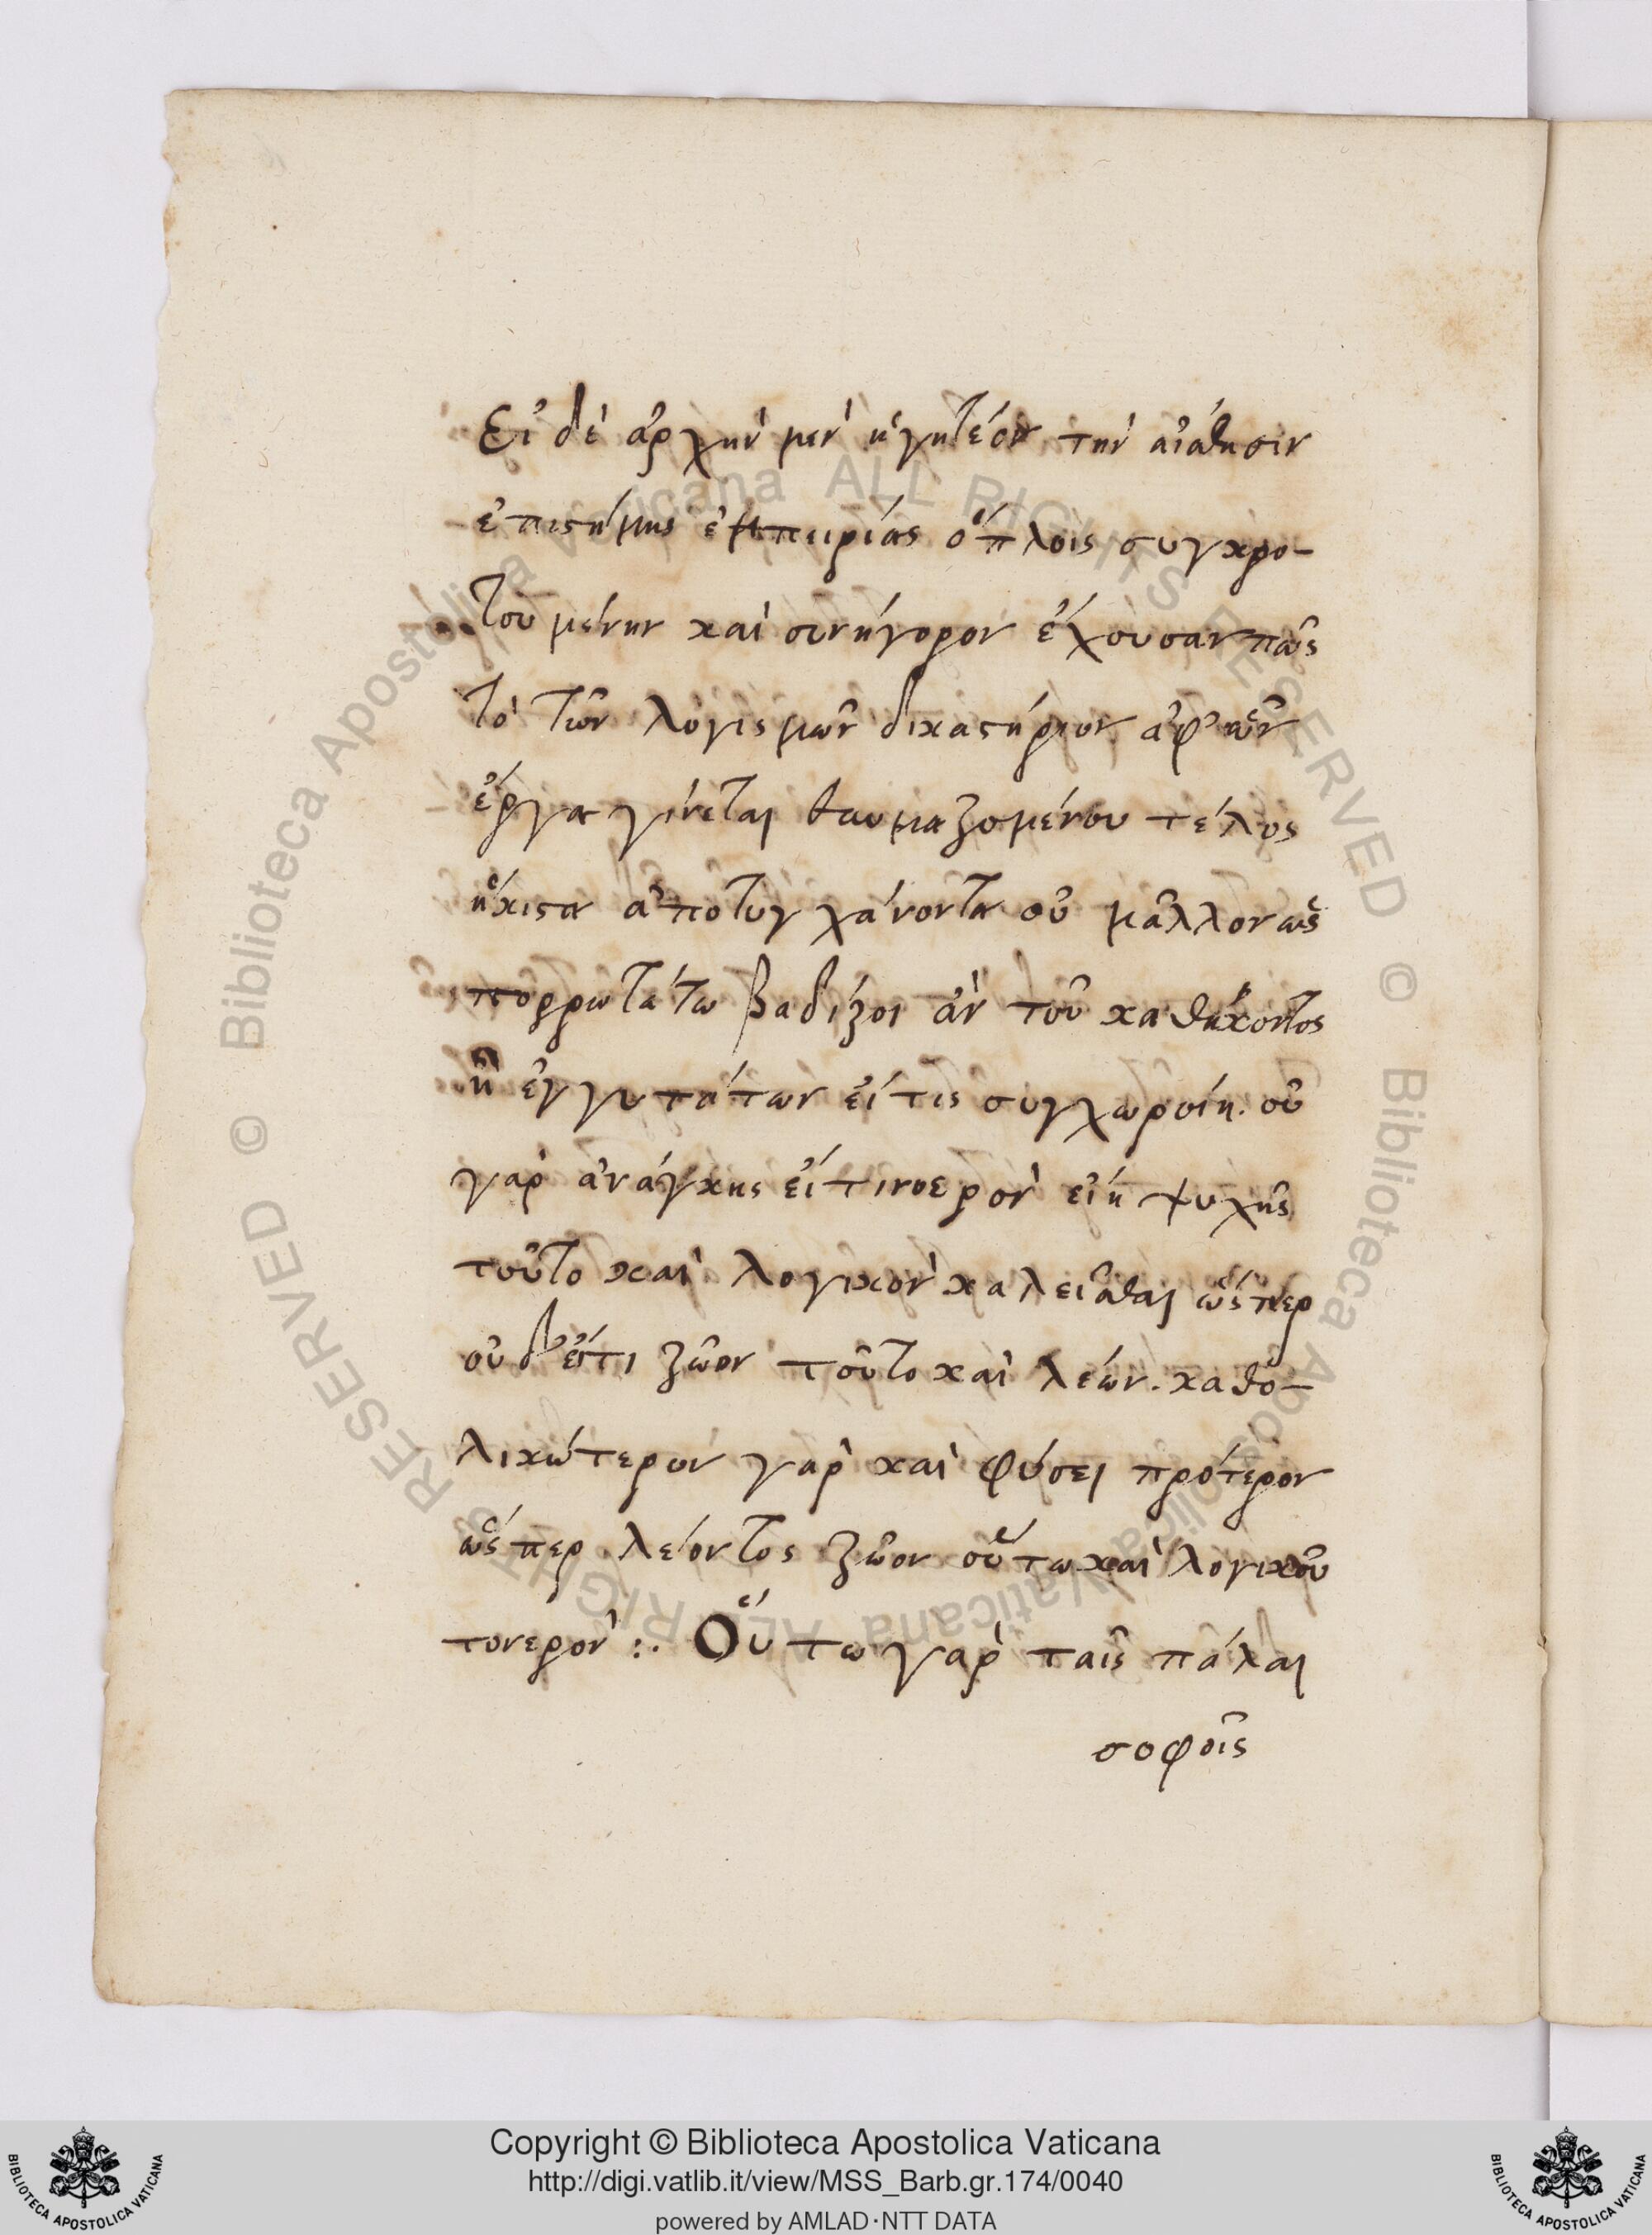 Εἰ δὲ ἀρχὴν μὲν ἡγητέον τὴν αἴσθησιν
ἐπιστήμης ἐμπειρίας ὅπλοις συγκρο-
τουμένην καὶ συνήγορον ἔχουσαν πῶς
τὸ τῶν λογισμῶν δικαστήριον ἀφ' ὧν
ἔργα γίνεται θαυμαζομένου τέλος
ἥκιστα ἀποτυγχάνοντα οὐ μᾶλλον ὡς
πορρωτάτω βαδίζοι ἂν τοῦ καθήκοντος
ἢ ἐγγυτάτων εἴ τις συγχωροίη. οὐ
γὰρ ἀνάγκης εἴ τι νοερὸν εἴη ψυχῆς
τοῦτο καὶ λογικὸν καλεῖσθαι ὥσπερ
οὐδ' εἴ τι ζῶον τοῦτο καὶ λέων. καθο-
λικώτερον γὰρ καὶ φύσει πρότερον
ὥσπερ λέοντος ζῶον οὕτω καὶ λογικοῦ
τονερὸν :. Οὕτω γὰρ ταῖς πάλαι
σοφοῖς
Copyright © Biblioteca Apostolica Vaticana
http://digi.vatlib.it/view/MSS_Barb.gr.174/0040
powered by AMLAD·NTT DATA
BIBLIOTECA APOSTOLICA VATICANA
BIBLIOTECA APOSTOLICA VATICANA
© Biblioteca Apostolica Vaticana ALL RIGHTS RESERVED © Biblioteca Apostolica Vaticana ALL RIGHTS RESERVED